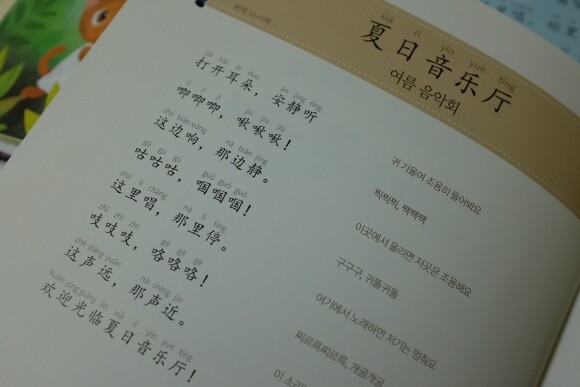 xià rì yīn yuè tīng
夏日音乐厅
여름 음악회
dǎ kāi ěr duo ān jìng tīng
打开耳朵，安静听
jī jī jī jiū jiū jiū
唧唧唧，啾啾啾！
zhè biān xiǎng nà biān jìng
这边响，那边静。
gū gū gū guō guō guō
咕咕咕，啯啯啯！
zhè lǐ chàng nà lǐ tíng
这里唱，那里停。
zhī zhī zhī gē gē gē
吱吱吱，咯咯咯！
zhè shēng yuǎn nà shēng jìn
这声远，那声近。
huān yíng guāng lín xià rì yīn yuè tīng
欢迎光临夏日音乐厅！
귀 기울여 조용히 들어봐요
찍찍찍, 짹짹짹
이곳에서 울리면 저곳은 조용해요
구구구, 귀뚤귀뚤
여기에서 노래하면 저기는 멈춰요
찌르륵찌르륵, 개굴개굴
이 소리